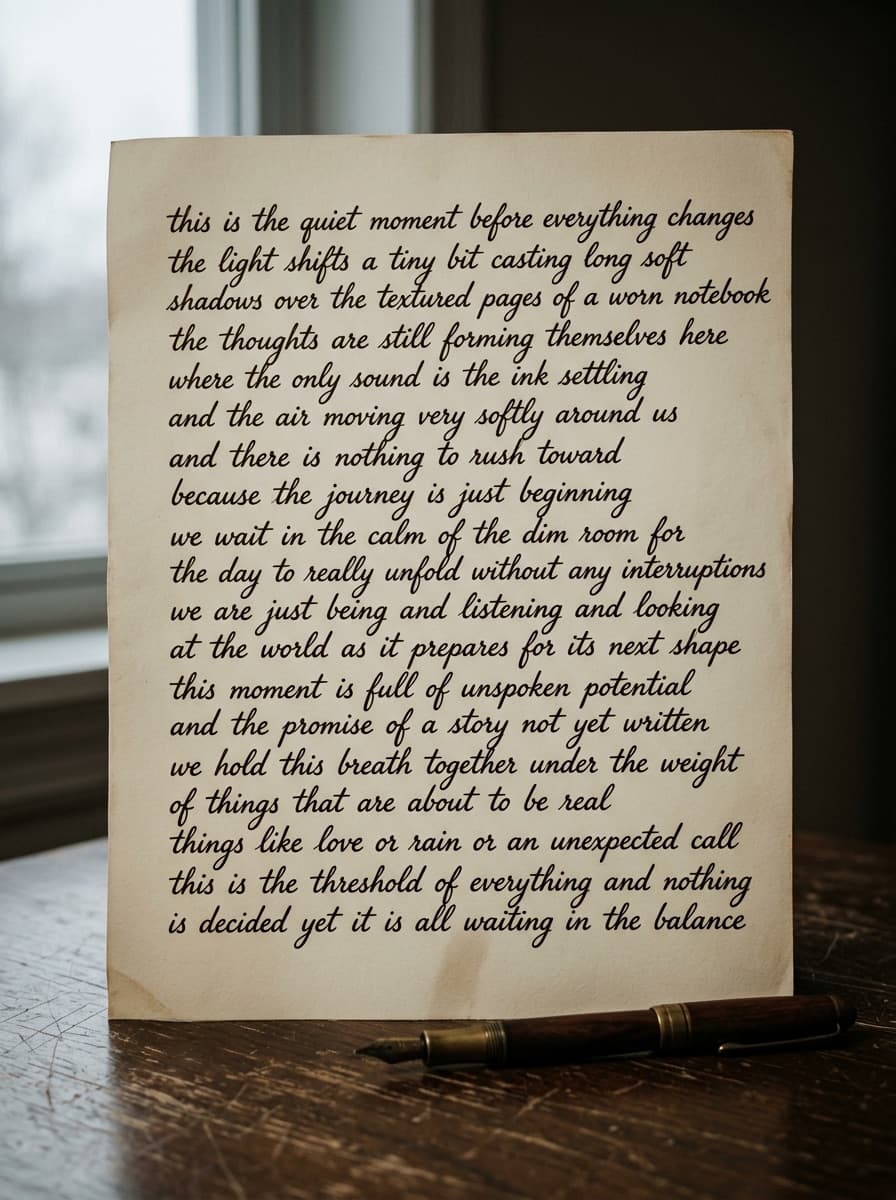 this is the quiet moment before everything changes
the light shifts a tiny bit casting long soft
shadows over the textured pages of a worn notebook
the thoughts are still forming themselves here
where the only sound is the ink settling
and the air moving very softly around us
and there is nothing to rush toward
because the journey is just beginning
we wait in the calm of the dim room for
the day to really unfold without any interruptions
we are just being and listening and looking
at the world as it prepares for its next shape
this moment is full of unspoken potential
and the promise of a story not yet written
we hold this breath together under the weight
of things that are about to be real
things like love or rain or an unexpected call
this is the threshold of everything and nothing
is decided yet it is all waiting in the balance